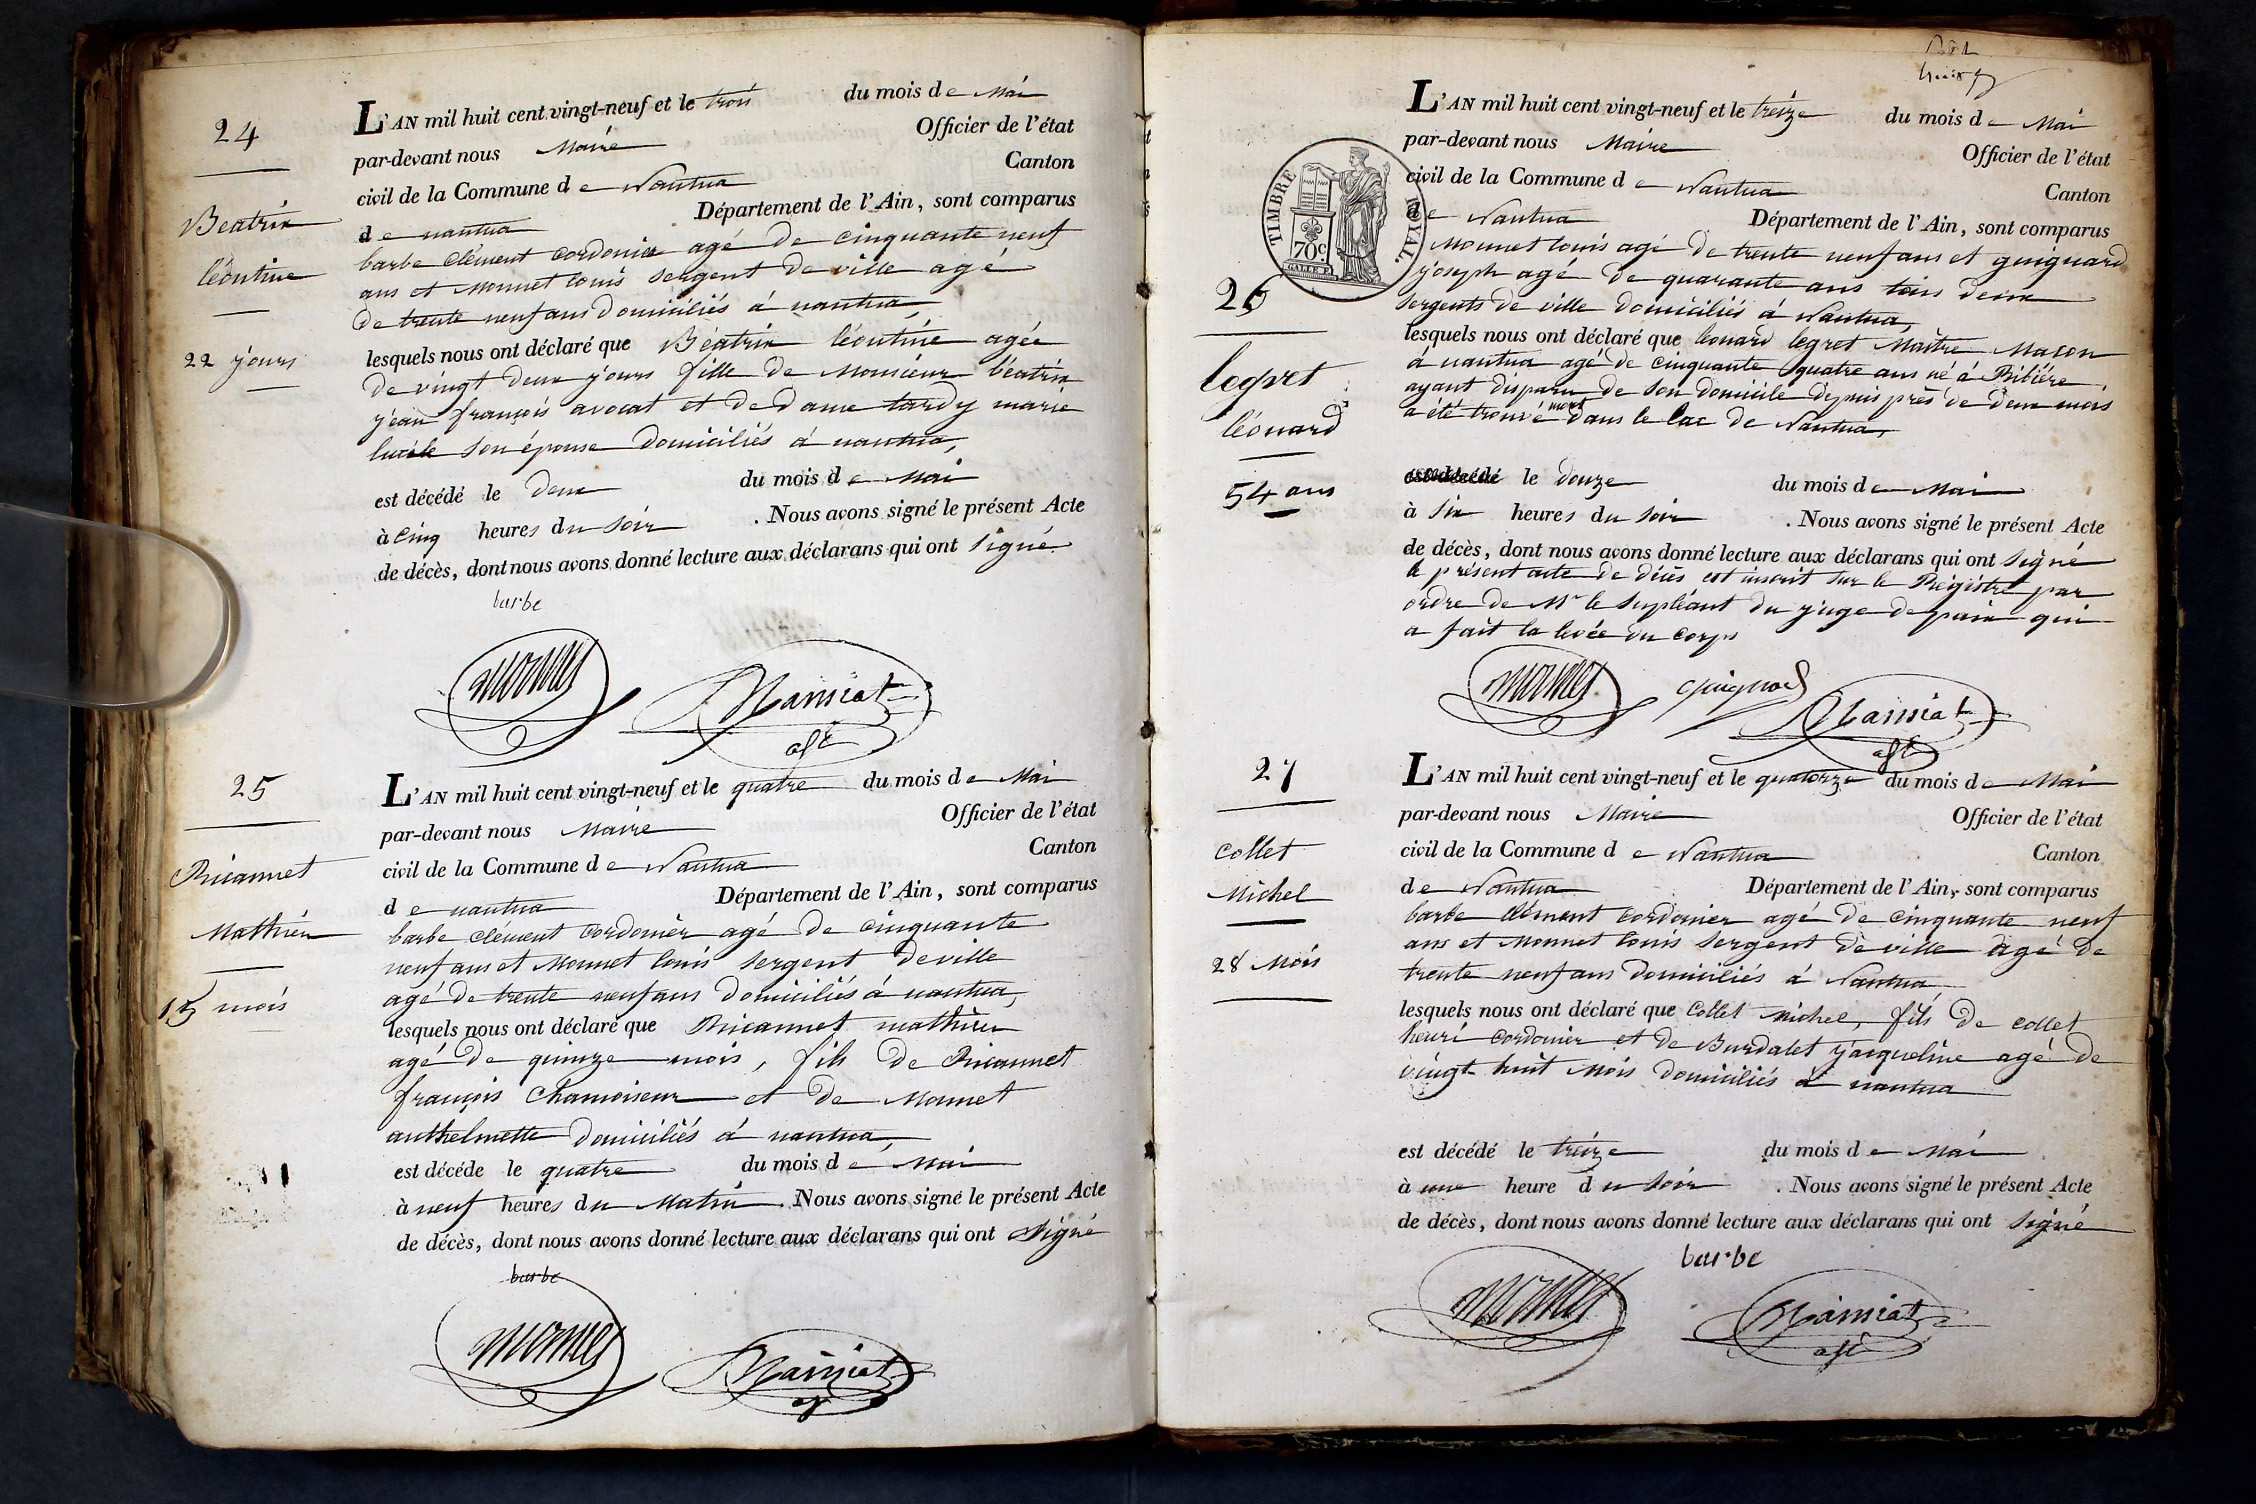 24
Beatrix
léontine
22 jours
L'AN mil huit cent vingt-neuf et le trois du mois de Mai
par-devant nous Maire Officier de l'état
civil de la Commune de Nantua Canton
de nantua Département de l'Ain, sont comparus
barbe clément cordonier agé de cinquante neuf
ans et Monnet louis sergent de ville agé
de trente neuf ans domiciliés à nantua,
lesquels nous ont déclaré que Béatrix léontine agée
de vingt deux jours fille de Monsieur béatrix
jean françois avocat et de dame tardy marie
lucile son épouse domiciliés à nantua,
est décédé le deux du mois de Mai
à cinq heures du soir . Nous avons signé le présent Acte
de décès, dont nous avons donné lecture aux déclarans qui ont signé
barbe
monnet
25
Mathieu
15 mois
L'AN mil huit cent vingt-neuf et le quatre du mois de Mai
par-devant nous Maire Officier de l'état
civil de la Commune de Nantua Canton
de nantua Département de l'Ain, sont comparus
barbe clément cordonier agé de cinquante
neuf ans et Monnet louis sergent de ville
agé de trente neuf ans domiciliés à nantua,
lesquels nous ont déclaré que mathieu
agé de quinze mois, fils de
françois chamoiseur et de Monnet
anthelmette domiciliés à nantua,
est décéde le quatre du mois de Mai
à neuf heures du Matin . Nous avons signé le présent Acte
de décès, dont nous avons donné lecture aux déclarans qui ont signé
barbe
monnet
TIMBRE ROYAL
70c
26
legret
léonard
54 ans
L'AN mil huit cent vingt-neuf et le treize du mois de Mai
par-devant nous Maire Officier de l'état
civil de la Commune de Nantua Canton
de Nantua Département de l'Ain, sont comparus
Monnet louis agé de trente neuf ans et guignard
joseph agé de quarante ans tous deux
sergents de ville domiciliés à Nantua,
lesquels nous ont déclaré que léonard legret Maître Maçon
à nantua agé de cinquante quatre ans né à
ayant disparu de son domicile depuis près de deux mois
a été trouvé mort dans le lac de Nantua,
est décédé le douze du mois de Mai
à six heures du soir . Nous avons signé le présent Acte
de décès, dont nous avons donné lecture aux déclarans qui ont signé
le présent acte de décès est inscrit sur le Régistre par
ordre de Mr le supléant du juge de paix qui
a fait la levée du corps
monnet guignard
27
Collet
Michel
28 Mois
L'AN mil huit cent vingt-neuf et le quatorze du mois de Mai
par-devant nous Maire Officier de l'état
civil de la Commune de Nantua Canton
de Nantua Département de l'Ain, sont comparus
barbe clément cordonier agé de cinquante neuf
ans et Monnet louis sergent de ville agé de
trente neuf ans domiciliés à Nantua
lesquels nous ont déclaré que Collet Michel, fils de collet
henri cordonier et de Burdalet jacqueline agé de
vingt huit Mois domiciliés à nantua
est décédé le treize du mois de Mai
à une heure du soir . Nous avons signé le présent Acte
de décès, dont nous avons donné lecture aux déclarans qui ont signé
barbe
monnet